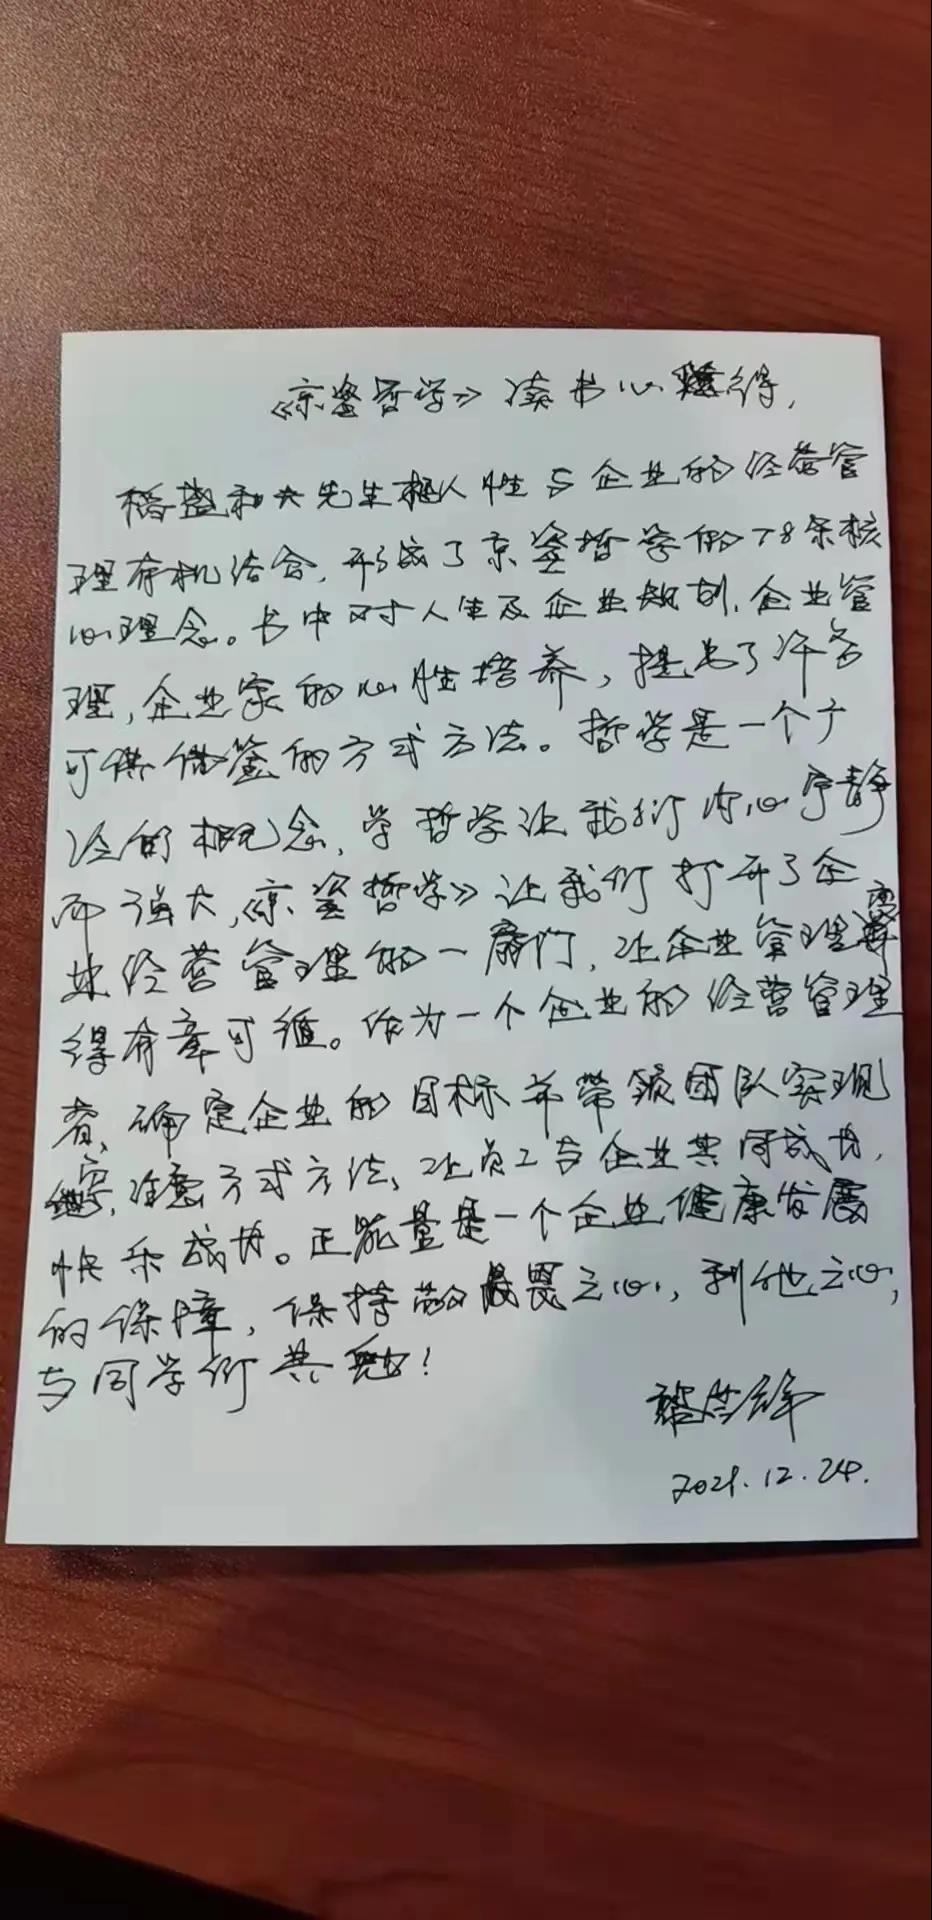 《京瓷哲学》读书心得,
稻盛和夫先生把人性与企业的经营管
理有机结合,形成了京瓷哲学的78条核
心理念。书中对人生及企业规划、企业管
理,企业家的心性培养,提出了许多
可供借鉴的方式方法。哲学是一个广
泛的概念,学哲学让我们内心宁静
而强大,《京瓷哲学》让我们打开了企
业经营管理的一扇门,让企业管理变
得有章可循。作为一个企业的经营管理
者,确定企业的目标并带领团队实现
注意方式方法,让员工与企业共同成功,
快乐成功。正能量是一个企业健康发展
的保障,保持敬畏之心,利他之心,
与同学们共勉!
2021.12.24.